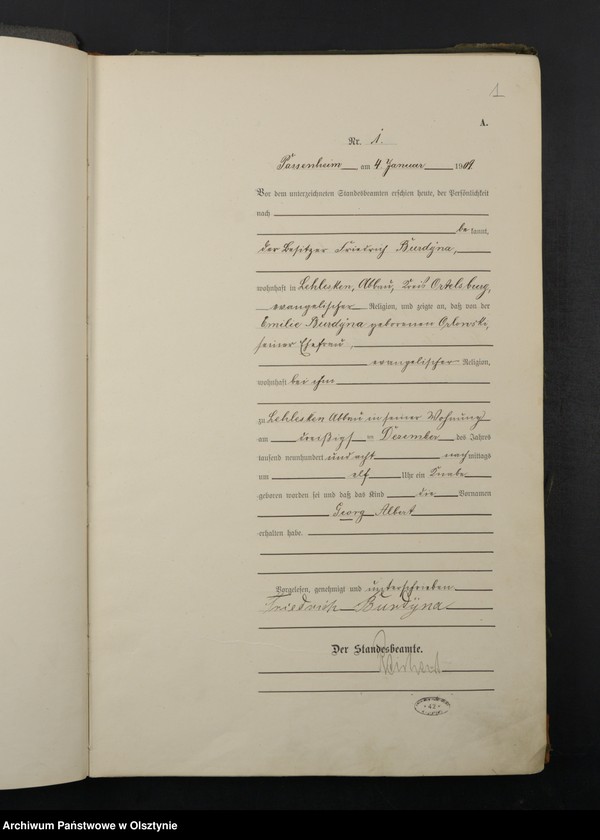 1
A.
Nr. 1.
Passenheim am 4. Januar 1909
Vor dem unterzeichneten Standesbeamten erschien heute, der Persönlichkeit
nach
be kannt,
der Besitzer Friedrich Burdyna,
wohnhaft in Lehlesken, Abbau, Kreis Ortelsburg,
evangelischer Religion, und zeigte an, daß von der
Emilie Burdyna geborenen Orlowski,
seiner Ehefrau
evangelischer Religion,
wohnhaft bei ihm
zu Lehlesken Abbau in seiner Wohnung
am dreißigst en Dezember des Jahres
tausend neunhundert und acht nach mittags
um elf Uhr ein Knabe
geboren worden sei und daß das Kind die Vornamen
Georg Albert
erhalten habe.
Vorgelesen, genehmigt und unterschrieben
Friedrich Burdÿna
Der Standesbeamte.
43
Archiwum Państwowe w Olsztynie